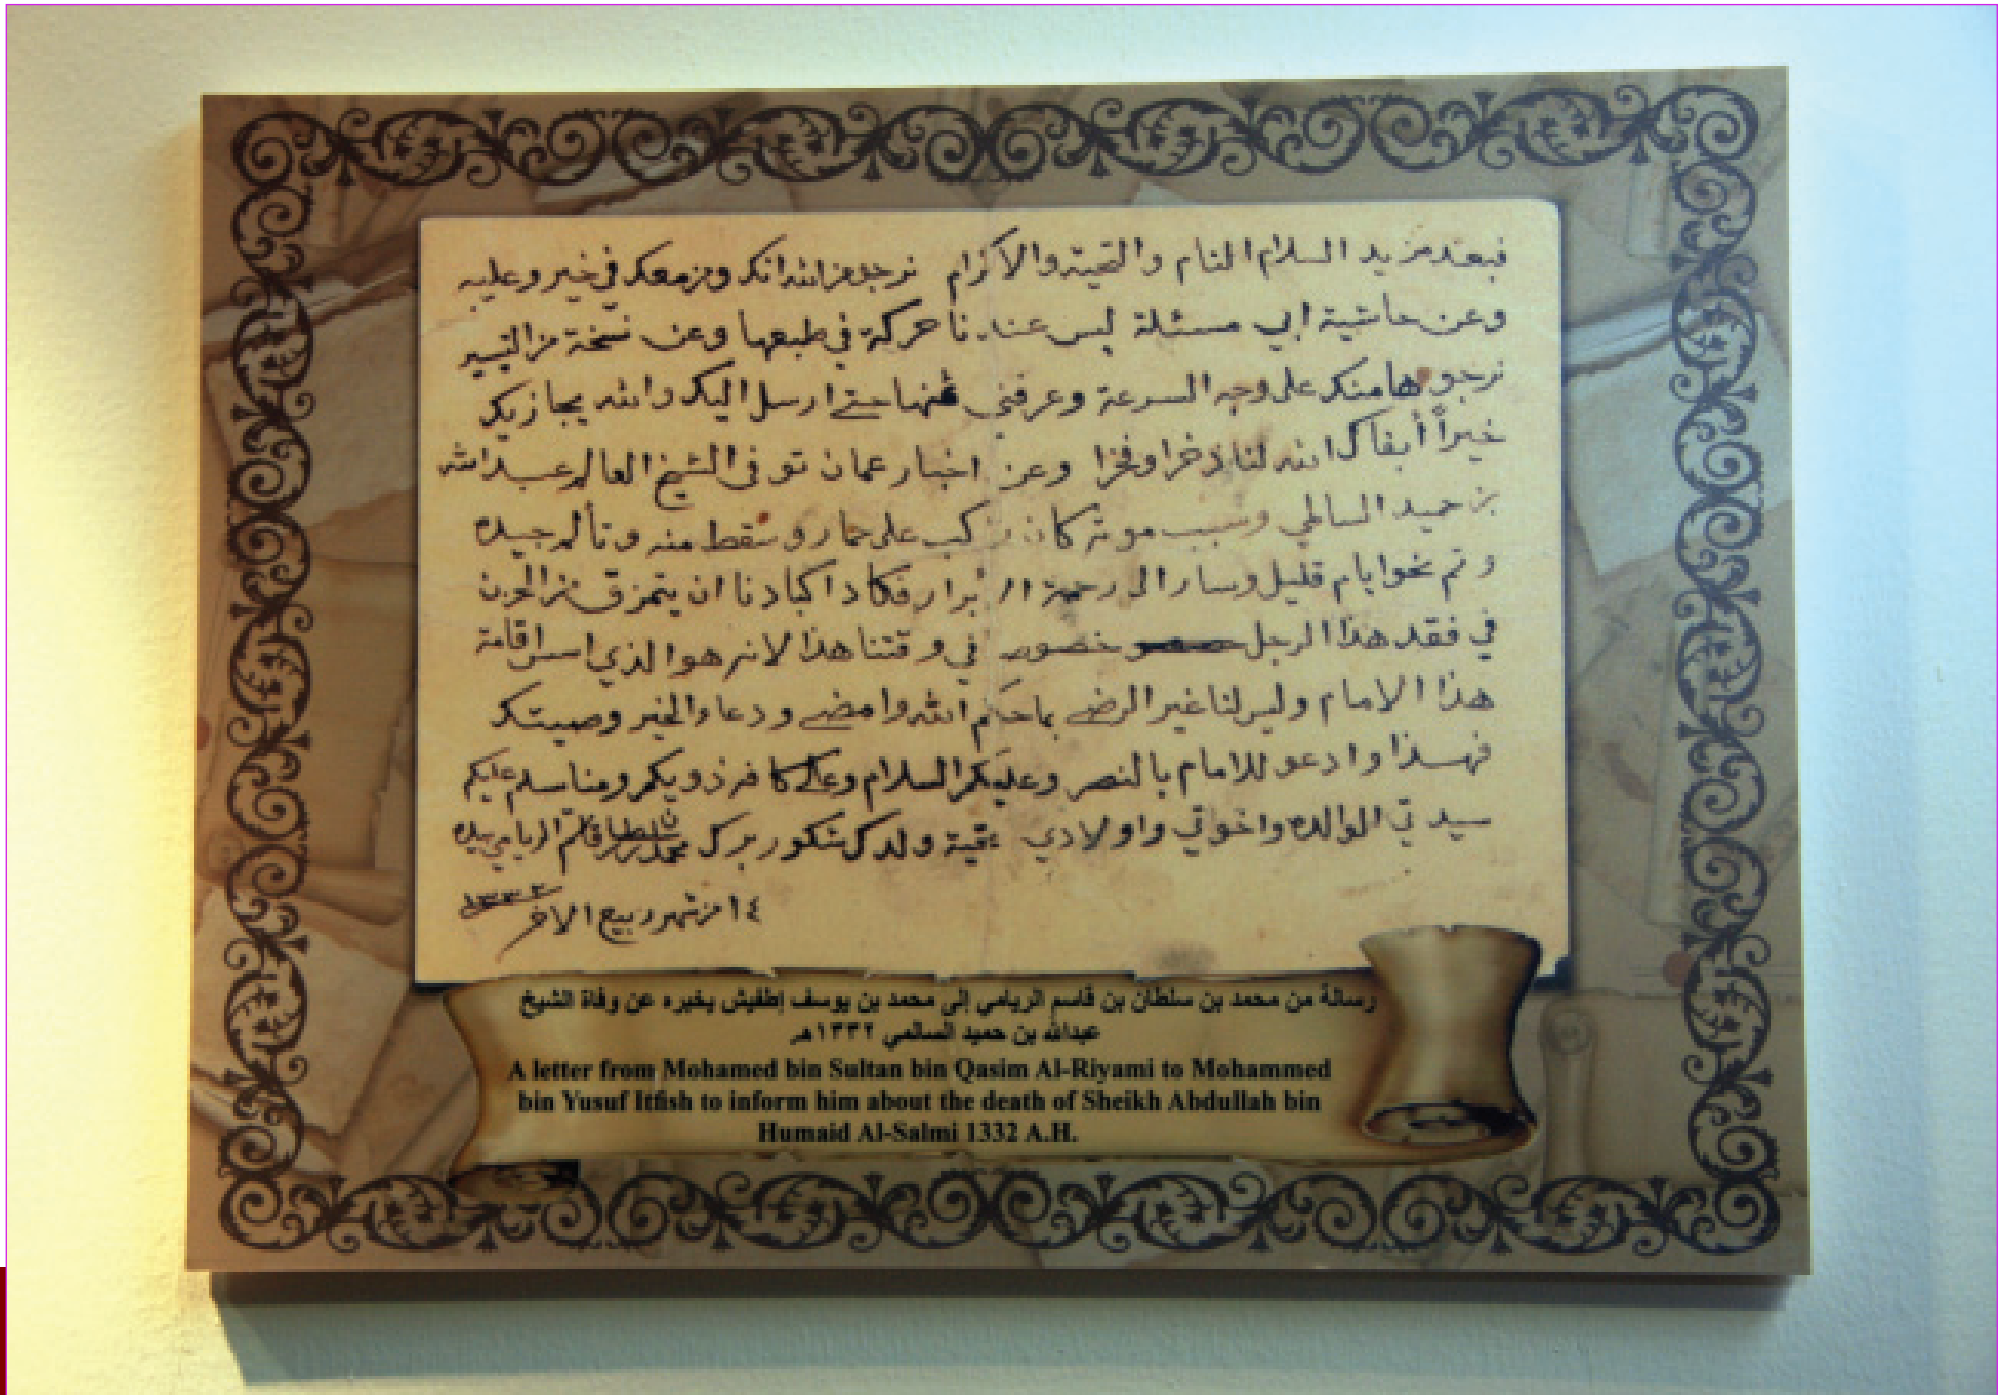 فبعد مزيد السلام التام والتحية والاكرام نرجو من الله انك ومن معك في خير وعليه
وعن حاشية ابي مسئلة ليس عندنا حركة في طبعها وعن نسخة من التيسير
نرجوها منك على وجه السرعة وعرفني ثمنها حتى ارسل اليك والله يجازيك
خيراً أبقاك الله لنا ذخرا وفخرا وعن اخبار عمان توفى الشيخ العالم عبدالله
بن حميد السالمي وسبب موته كان ركب على حمار وسقط منه وتألم جيده
وتم نحو ايام قليل وسار الى رحمة الابرار فكادا كبادنا ان يتمزق من الحزن
في فقد هذا الرجل خصوص في وقتنا هذا لانه هو الذي اسس اقامة
هذا الامام وليس لنا غير الرضى بما حكم الله وامضى ودعاء الخير وصيتك
فهذا وادعو للامام بالنصر وعليكم السلام وعلى كافه ذويكم ومنا سلم عليكم
سيدتي الوالده واخوتي واولادي تحية ولدك شكور برك محمد بن سلطان بن قاسم الريامي بيده
١٤ من شهر ربيع الاخر ١٣٣٢
رسالة من محمد بن سلطان بن قاسم الريامي إلى محمد بن يوسف إطفيش يخبره عن وفاة الشيخ
عبدالله بن حميد السالمي ١٣٣٢هـ
A letter from Mohamed bin Sultan bin Qasim Al-Riyami to Mohammed
bin Yusuf Itfish to inform him about the death of Sheikh Abdullah bin
Humaid Al-Salmi 1332 A.H.